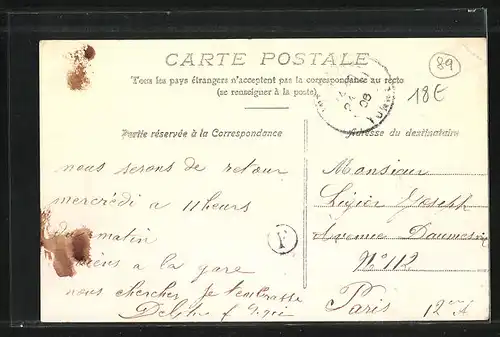 CARTE POSTALE
Tous les pays étrangers n'acceptent pas la correspondance au recto
(se renseigner à la poste)
89
18E
Partie réservée à la Correspondance
Adresse du destinataire
nous serons de retour
mercrédi a 11 heurs
du matin
viens a la gare
nous chercher Je t'embrasse
Delphine
F
Monsieur
Ligier Joseph
Avenue Daumesnil
N° 112
Paris 12